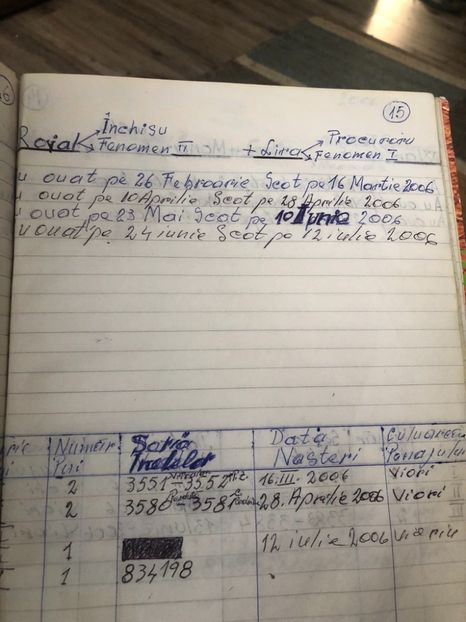 15
Închisu
Procuroru
Rojal
Fenomen II
+ Lira
Fenomen I
ouat pe 26 Februarie Scot pe 16 Martie 2006
ouat pe 10 Aprilie Scot pe 28 Aprilie 2006
ouat pe 23 Mai Scot pe 10 Iunie 2006
ouat pe 24 iunie Scot pe 12 iulie 2006
Număr Seria Data Culoarea
Pui Inelelor Nașteri Penajului
2 3551 - 3552 16. III. 2006 Viori
2 3580 - 3581 28. Aprilie 2006 Viori
1 12 iulie 2006
1 834198